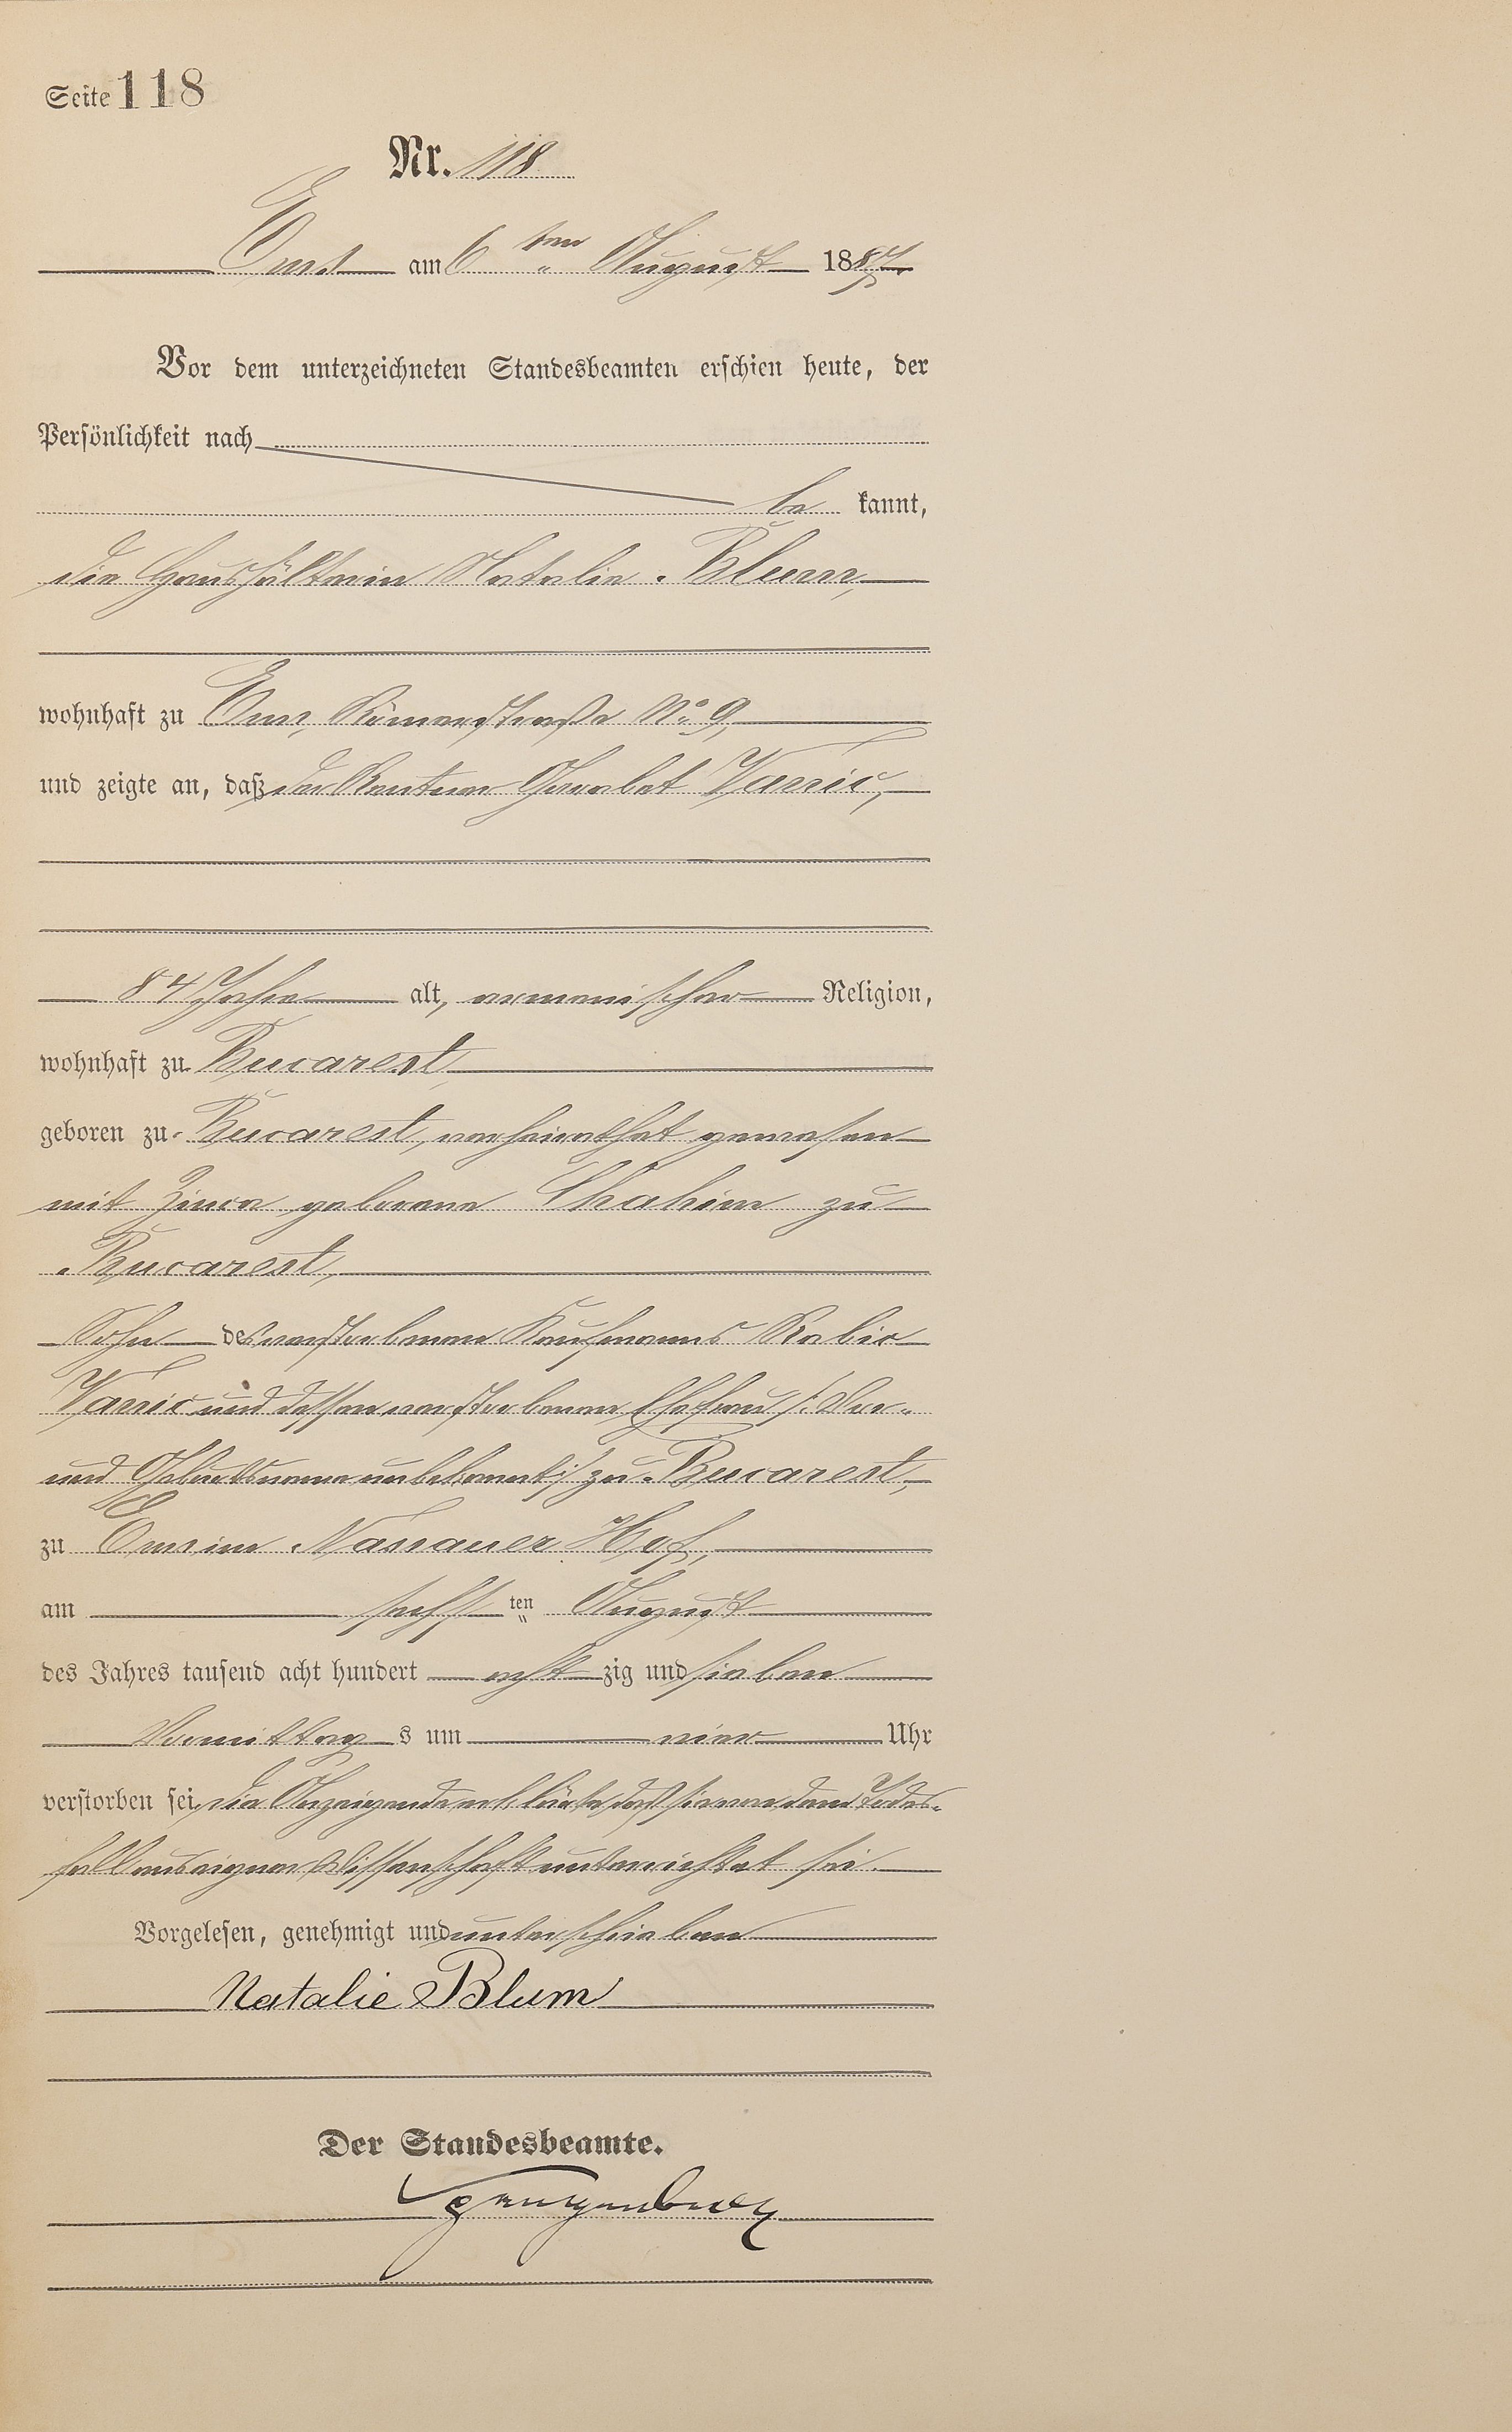 Seite 118
Nr. 118
Ems am 6ten August 1887.
Vor dem unterzeichneten Standesbeamten erschien heute, der
Persönlichkeit nach
be kannt,
die Haushälterin Natalie Blum,
wohnhaft zu Ems, Römerstraße No 9,
und zeigte an, daß der Rentner Garabet Vanic,
84 Jahre alt, armenischer Religion,
wohnhaft zu Bucarest
geboren zu Bucarest, verheirathet gewesen
mit geborene Chahim zu
Bucarest,
Sohn des verstorbenen Kaufmanns
Vanic und dessen verstorbenen Ehefrau /: Vor-
und Geburtsname unbekannt :/ zu Bucarest,
zu Ems im Nassauer Hof,
am sechsten August
des Jahres tausend acht hundert acht zig und sieben
Vormittag s um vier Uhr
verstorben sei, die Anzeigende erklärte, daß sie von dem Todes-
fall aus eigner Wissenschaft unterrichtet sei.
Vorgelesen, genehmigt und unterschrieben
Natalie Blum
Der Standesbeamte.